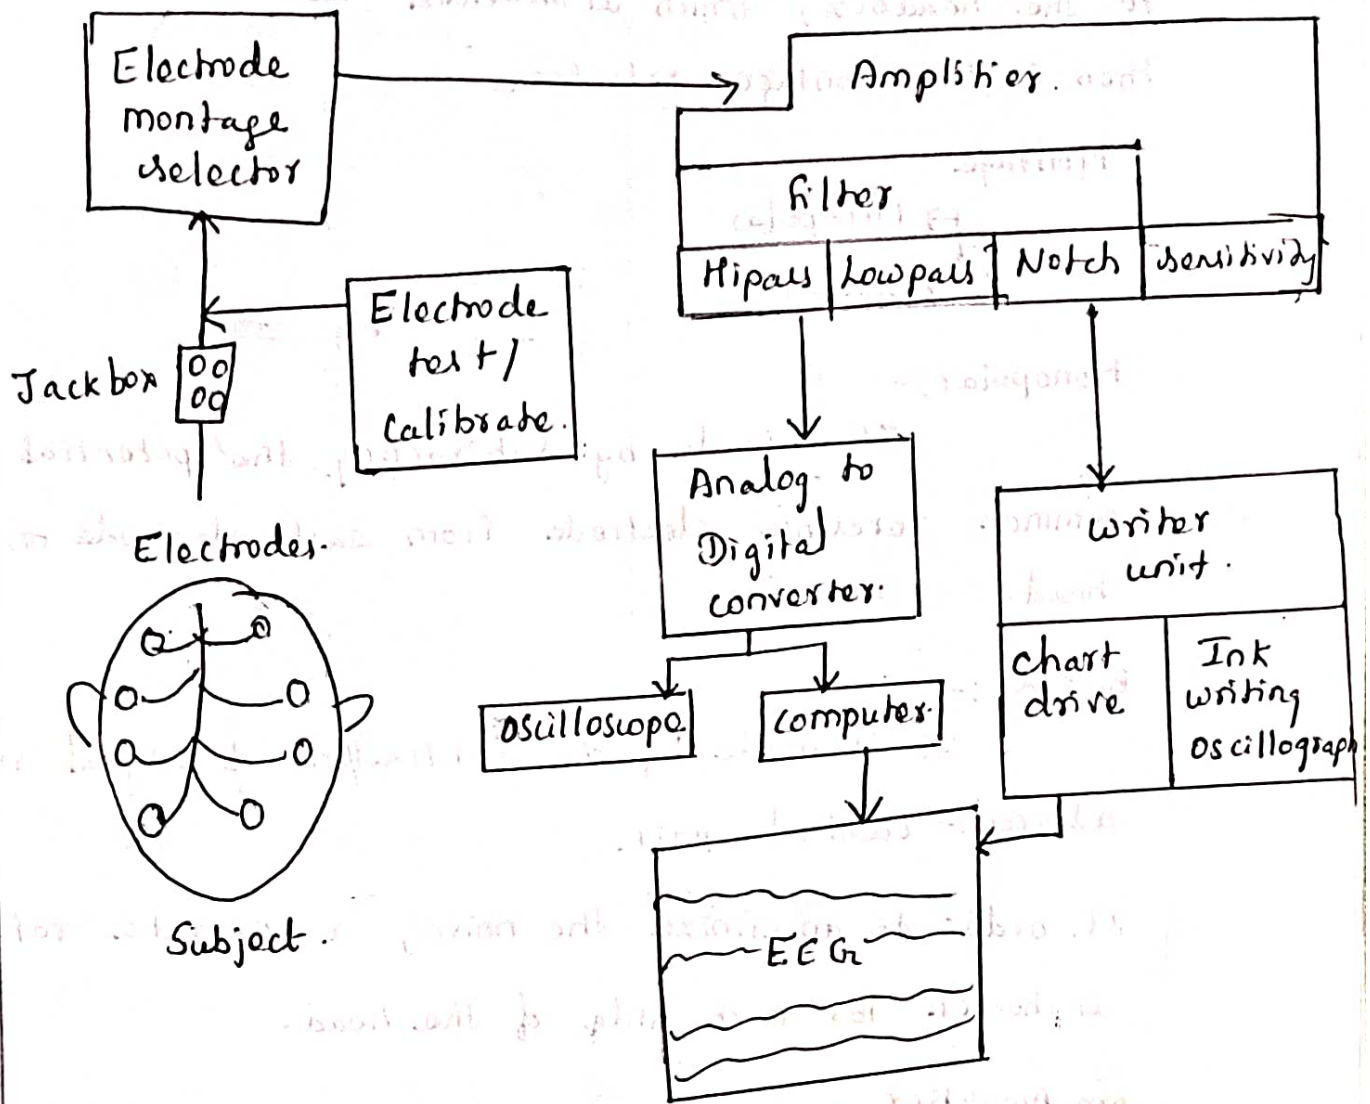 Electrode
montage
selector
Amplifier.
Filter
Hipass
Lowpass
Notch
sensitivity
Electrode
test/
calibrate.
Jackbox
Electrodes.
Subject.
Analog to
Digital
converter.
Oscilloscope
computer.
writer
unit.
chart
drive
Ink
writing
oscillograph
EEG